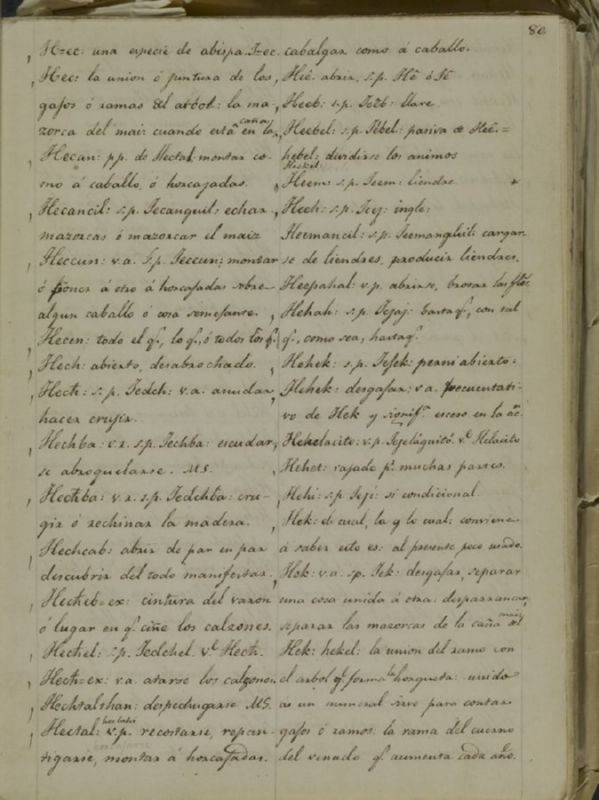 80
Hzec: una especie de abispa. Izec.
Hec: la union ó juntura de los
gajos ó ramas del arbol: la ma
zorca del maiz cuando está en la caña
Hecan: pp. de Hectal: montar co-
mo á caballo, ó horcajadas.
Hecancil: s.p. Jecanquil: echar
mazorcas ó mazorcar el maiz
Heccun: v.a. s.p. Jeccun: montar
ó poner á otro á horcajadas sobre
algun caballo ó cosa semejante.
Hecen: todo el q.e, lo q.e, ó todos los q.e
Hech: abierto, desabrochado.
Hech: s.p. Jedch: v.a. anudar
hacer crujir.
Hechba: v.r. s.p. Jechba: escudar
se abroquelarse. M.S.
Hechba: v.r. s.p. Jedchba: cru-
gir ó rechinar la madera.
Hechcab: abrir de par en par
descubrir del todo manifestar.
Hecheb-ex: cintura del varon
ó lugar en q.e ciñe los calzones.
Hechel: s.p. Jedchel. v.e Hech.
Hech-ex: v.a. atarse los calzones
Hechtalshan: despechugarse M.S.
Hectal: v.p. recostarse, repan-
tigarse, montar á horcajadas.
cabalgar como á caballo.
Hé: abrir. s.p. Hé ó Jé
Heeb: s.p. Jéeb: llave
Heebel: s.p. Jébel: pasiva de Heé.=
hebel: dividirse los animos
Heem: s.p. Jeem: liendre
Heeh: s.p. Jeej: ingle:
Heemancil: s.p. Jeemanquil: cargar
se de liendres, producir liendres.
Heepahal: v.p. abrirse, brotar las flores
Hehah: s.p. Jejaj: hasta q.e, con tal
q.e, como sea, hasta q.e
Hehek: s.p. Jejek: perniabierto:
Hehek: desgajar: v.a. frecuentati-
vo de Hek y signif.a esceso en la ac.n
Hehelacito: v.p. Jejelaquitó. v.e Helacito
Hehet: rajado p.r muchas partes.
Hehi: s.p. Jeji: si condicional.
Hek: el cual, la q.e lo cual: conviene
á saber esto es: al presente poco usado.
Hek: v.a. s.p. Jek: desgajar, separar
una cosa unida á otra: desparrancar,
separar las mazorcas de la caña del maiz
Hek: hekel: la union del ramo con
el arbol q.e forma la horqueta: unido
á un numeral sirve para contar
gajos ó ramos: la rama del cuerno
del venado q.e aumenta cada año.